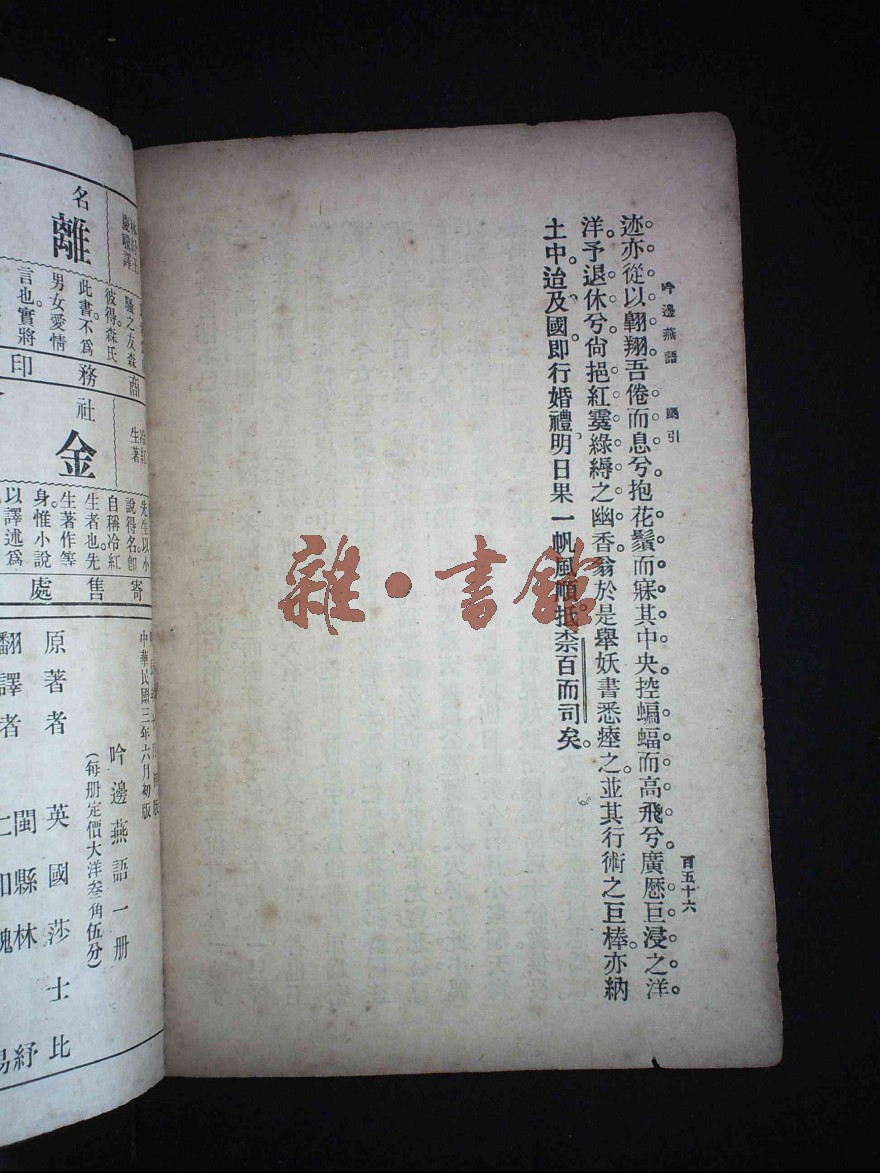 吟邊燕語 颶引
百五十六
迹亦從以翺翔。吾倦而息兮抱花鬚而寐其中央。控蝙蝠而高飛兮廣歷巨浸之洋
洋。予退休兮尙挹紅霙綠縟之幽香。翁於是舉妖書悉瘞之。並其行術之巨棒亦納
土中。迨及國即行婚禮明日果一帆風順。抵柰百而司矣。
雜·書館
名
離
此書不爲
男女愛情
言也實將
騷之友森
彼得。森氏
商務印
社
金
冷紅
生著
先生以小
說得名。卽
自稱冷紅
生者也。先
生著作等
身。惟小說
以譯述爲
寄售處
中華民國三年六月初版
吟邊燕語一册
(每册定價大洋叁角伍分)
原著者 英國莎士比
翻譯者 閩縣林紓
仁和魏易